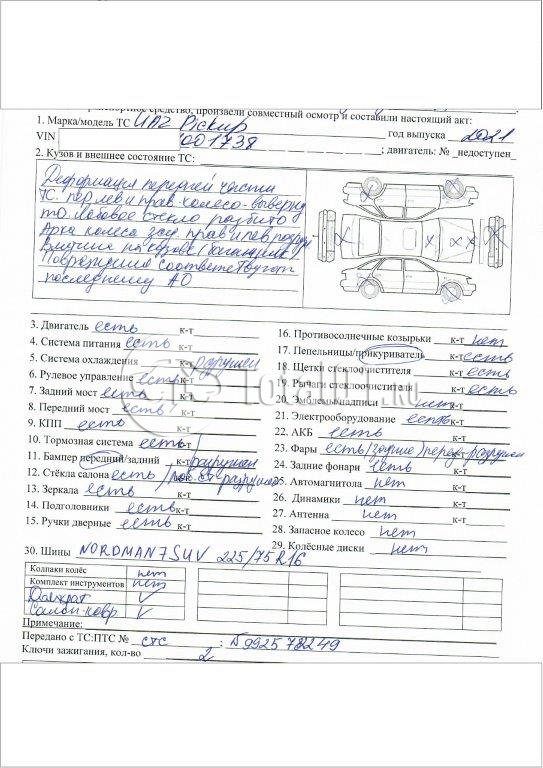 транспортное средство, произвели совместный осмотр и составили настоящий акт:
1. Марка/модель ТС UAZ Pickup
год выпуска 2021
VIN 001738 ; двигатель: № _недоступен_
2. Кузов и внешнее состояние ТС:
Деформация передней части
ТС. пер лев и прав колесо-выверну
то. лобовое стекло разбито
Арка колеса зад прав и лев
Вмятина на кузове (
Повреждения соответствуют
последнему АО
3. Двигатель есть к-т
4. Система питания есть к-т
5. Система охлаждения к-т разрушен
6. Рулевое управление есть к-т
7. Задний мост есть к-т
8. Передний мост есть к-т
9. КПП есть к-т
10. Тормозная система есть к-т
11. Бампер передний/задний к-т разрушен
12. Стёкла салона есть / разрушен
13. Зеркала есть к-т
14. Подголовники есть к-т
15. Ручки дверные есть к-т
16. Противосолнечные козырьки к-т нет
17. Пепельницы/прикуриватель к-т есть
18. Щетки стеклоочистителя к-т есть
19. Рычаги стеклоочистителя к-т есть
20. Эмблемы/надписи к-т
21. Электрооборудование есть к-т
22. АКБ есть к-т
23. Фары есть/задние/перед-разрушен
24. Задние фонари есть к-т
25. Автомагнитола нет к-т
26. Динамики нет к-т
27. Антенна нет к-т
28. Запасное колесо нет
29. Колёсные диски нет к-т
30. Шины NORDMAN 7 SUV 225/75 R16
Колпаки колёс нет
Комплект инструментов нет
Домкрат V
Салон. ковр V
Примечание:
Передано с ТС:ПТС № СТС ; 9925782249
Ключи зажигания, кол-во 2